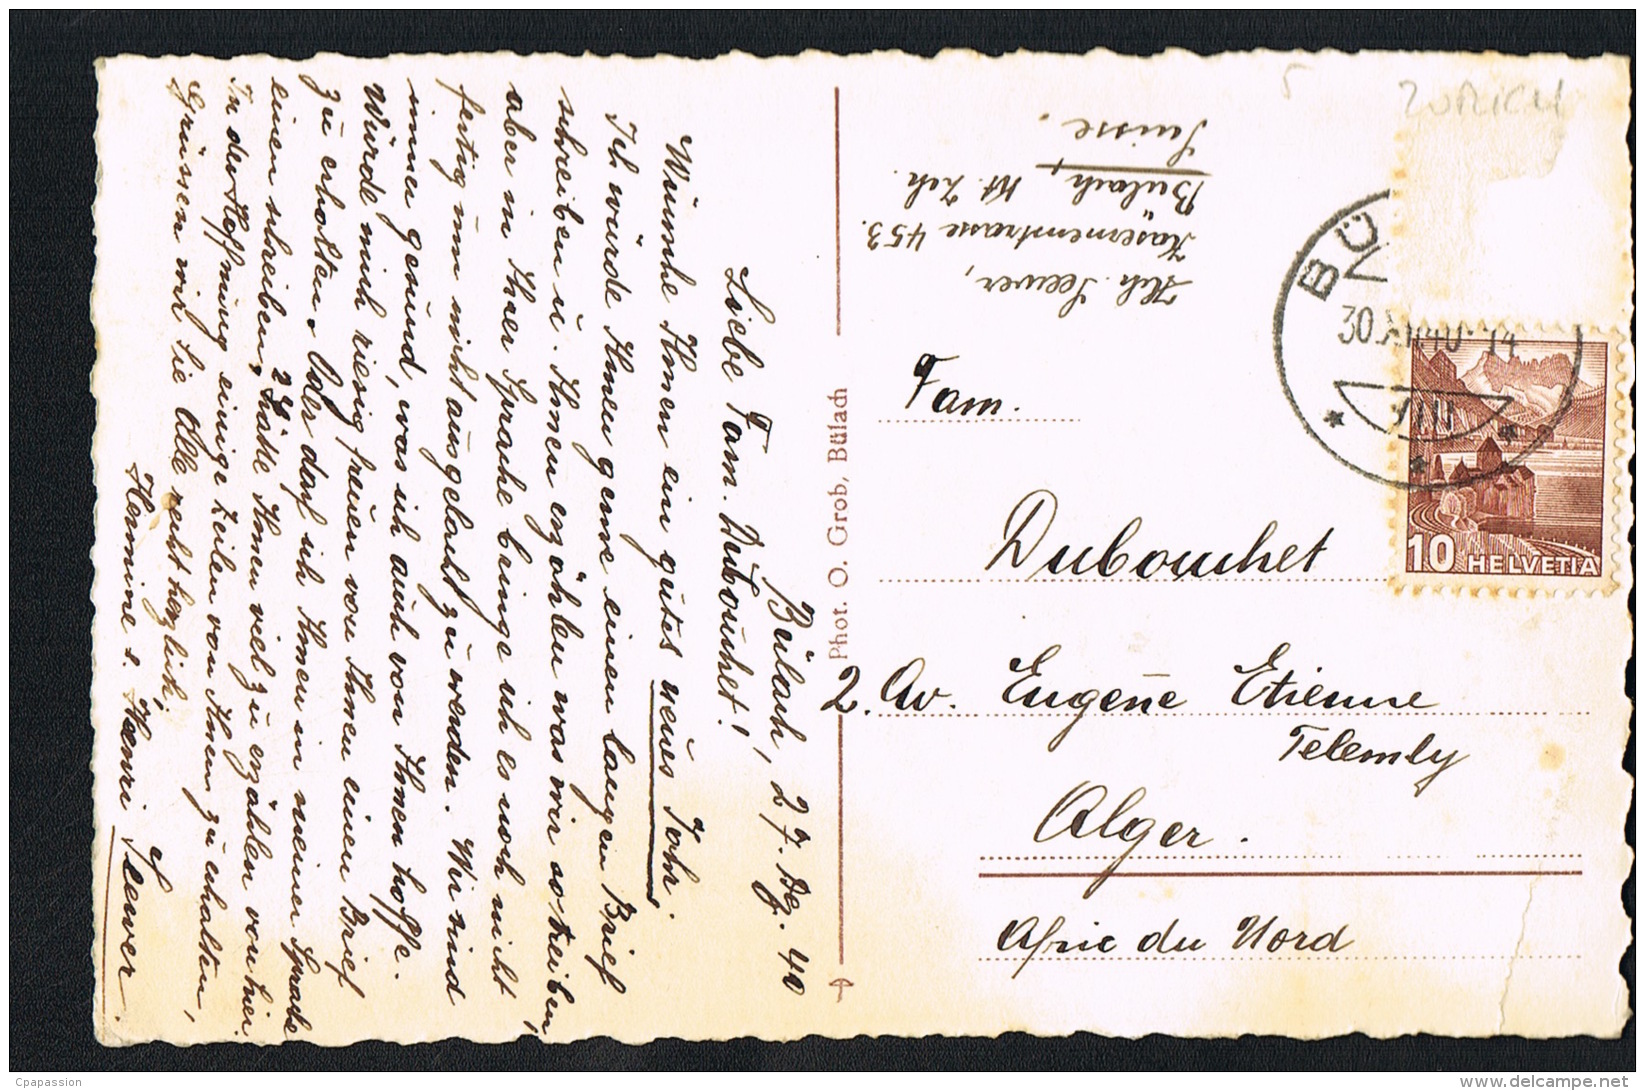 Bülach, 27. Dez. 40
Liebe Fam. Dubouchet!
Wünsche Ihnen ein gutes neues Jahr.
Ich würde Ihnen gerne einen langen Brief
schreiben u. Ihnen erzählen was wir so treiben,
aber in Ihrer Sprache bringe ich es noch nicht
fertig um nicht ausgelacht zu werden. Wir sind
immer gesund, was ich auch von Ihnen hoffe.
Würde mich riesig freuen von Ihnen einen Brief
zu erhalten. Oder darf ich Ihnen in meiner Sprache
einen schreiben, ? Hätte Ihnen viel zu erzählen von hier.
In der Hoffnung einige Zeilen von Ihnen zu erhalten,
Grüssen wir Sie Alle recht herzlich,
Hermine s. Henri Seewer.
Phot. O. Grob, Bülach
Hch. Seewer,
Kasernenstrasse 453.
Bülach, Kt. Zch.
Suisse.
ZURICH
BÜ
30.XII.40 14
VIII
10 HELVETIA
Fam.
Dubouchet
2. Av. Eugène Etienne
Telemly
Alger.
Afric du Nord
Cpapassion
www.delcampe.net